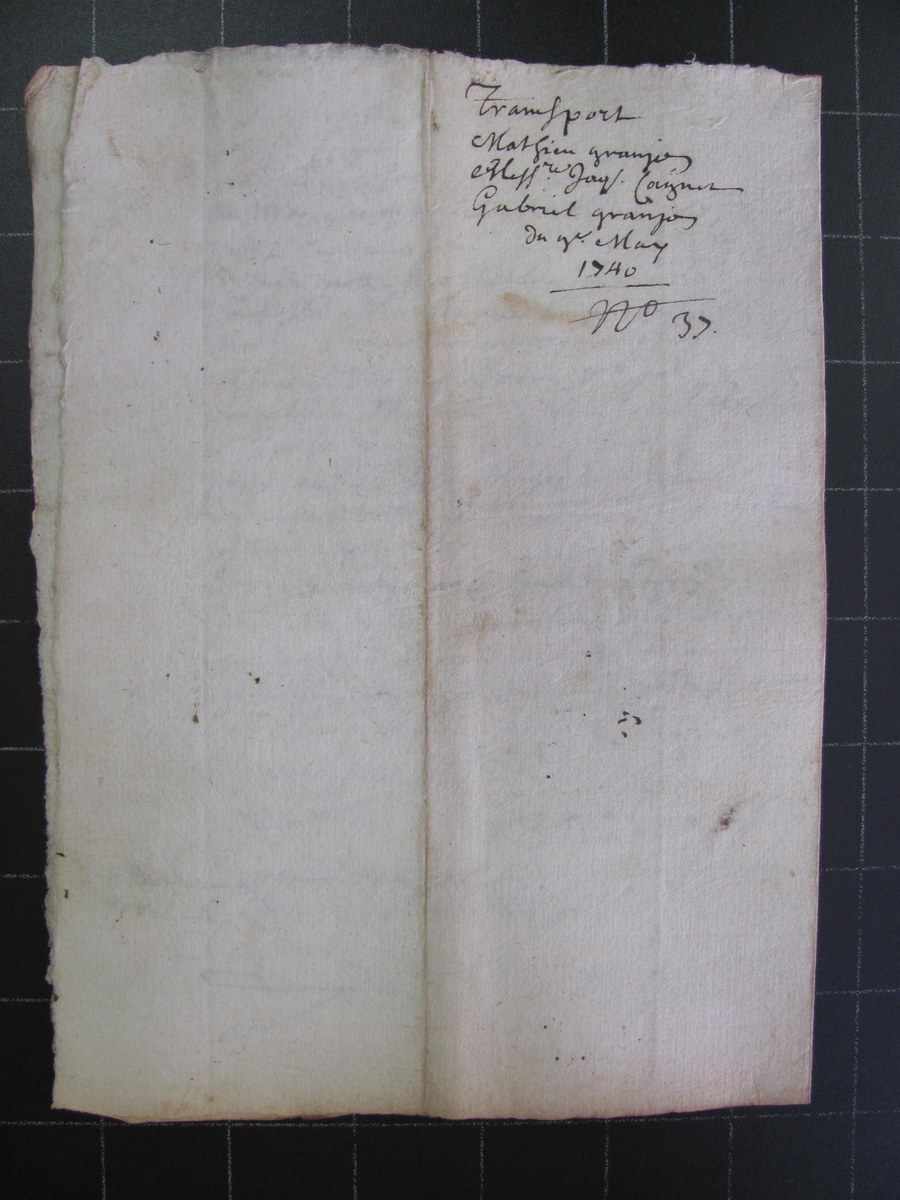 Transport
Mathieu granjon
Messre Jaqs. Coignet
Gabriel granjon
du 9e. May
1740
No 37.